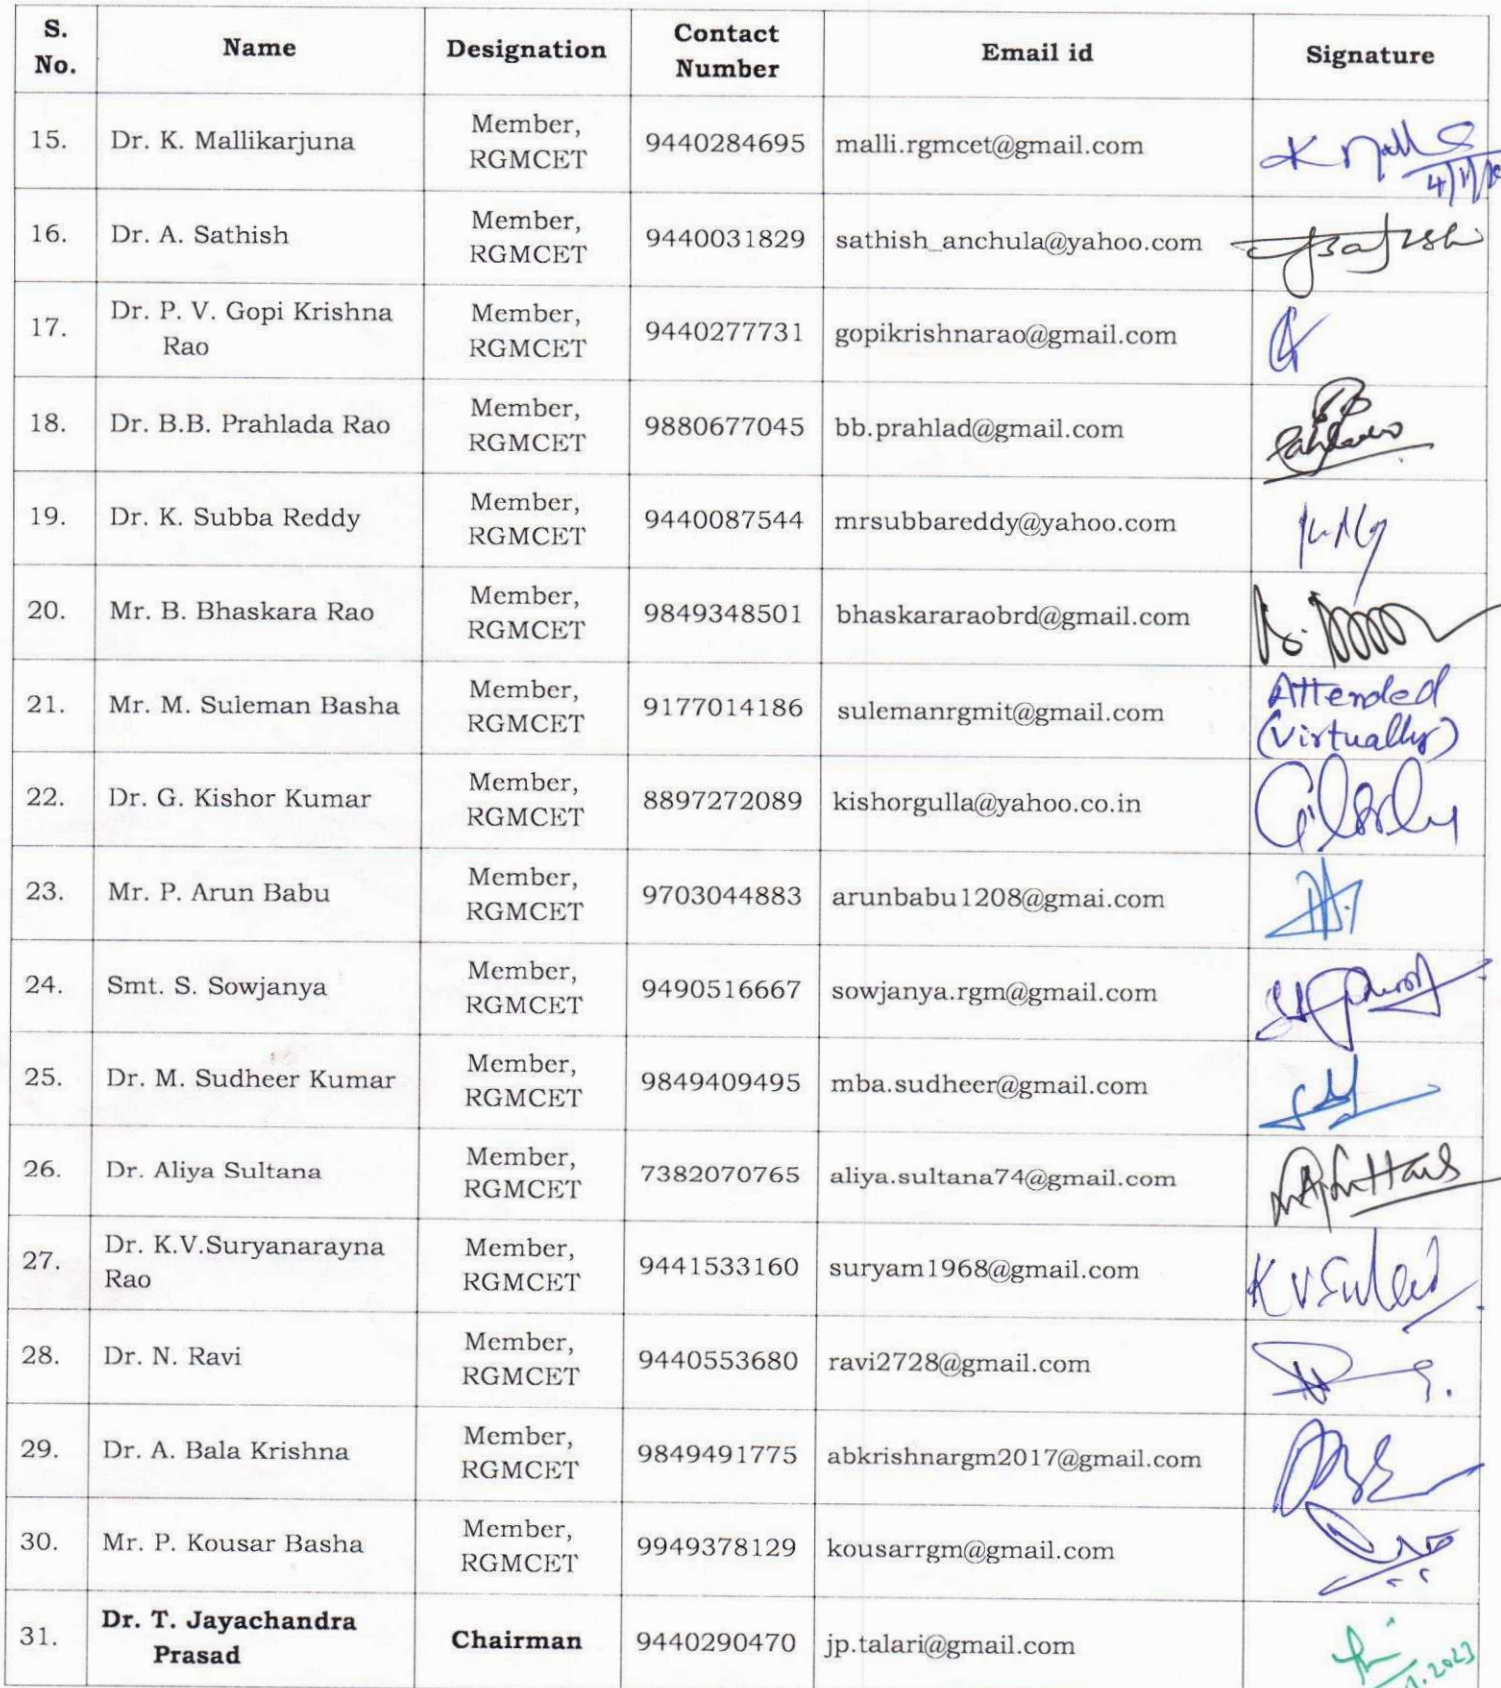 S. No. Name Designation Contact Number Email id Signature
15. Dr. K. Mallikarjuna Member, RGMCET 9440284695 malli.rgmcet@gmail.com
16. Dr. A. Sathish Member, RGMCET 9440031829 sathish_anchula@yahoo.com
17. Dr. P. V. Gopi Krishna Rao Member, RGMCET 9440277731 gopikrishnarao@gmail.com
18. Dr. B.B. Prahlada Rao Member, RGMCET 9880677045 bb.prahlad@gmail.com
19. Dr. K. Subba Reddy Member, RGMCET 9440087544 mrsubbareddy@yahoo.com
20. Mr. B. Bhaskara Rao Member, RGMCET 9849348501 bhaskararaobrd@gmail.com
21. Mr. M. Suleman Basha Member, RGMCET 9177014186 sulemanrgmit@gmail.com Attended (Virtually)
22. Dr. G. Kishor Kumar Member, RGMCET 8897272089 kishorgulla@yahoo.co.in
23. Mr. P. Arun Babu Member, RGMCET 9703044883 arunbabu1208@gmai.com
24. Smt. S. Sowjanya Member, RGMCET 9490516667 sowjanya.rgm@gmail.com
25. Dr. M. Sudheer Kumar Member, RGMCET 9849409495 mba.sudheer@gmail.com
26. Dr. Aliya Sultana Member, RGMCET 7382070765 aliya.sultana74@gmail.com
27. Dr. K.V.Suryanarayna Rao Member, RGMCET 9441533160 suryam1968@gmail.com
28. Dr. N. Ravi Member, RGMCET 9440553680 ravi2728@gmail.com
29. Dr. A. Bala Krishna Member, RGMCET 9849491775 abkrishnargm2017@gmail.com
30. Mr. P. Kousar Basha Member, RGMCET 9949378129 kousarrgm@gmail.com
31. Dr. T. Jayachandra Prasad Chairman 9440290470 jp.talari@gmail.com